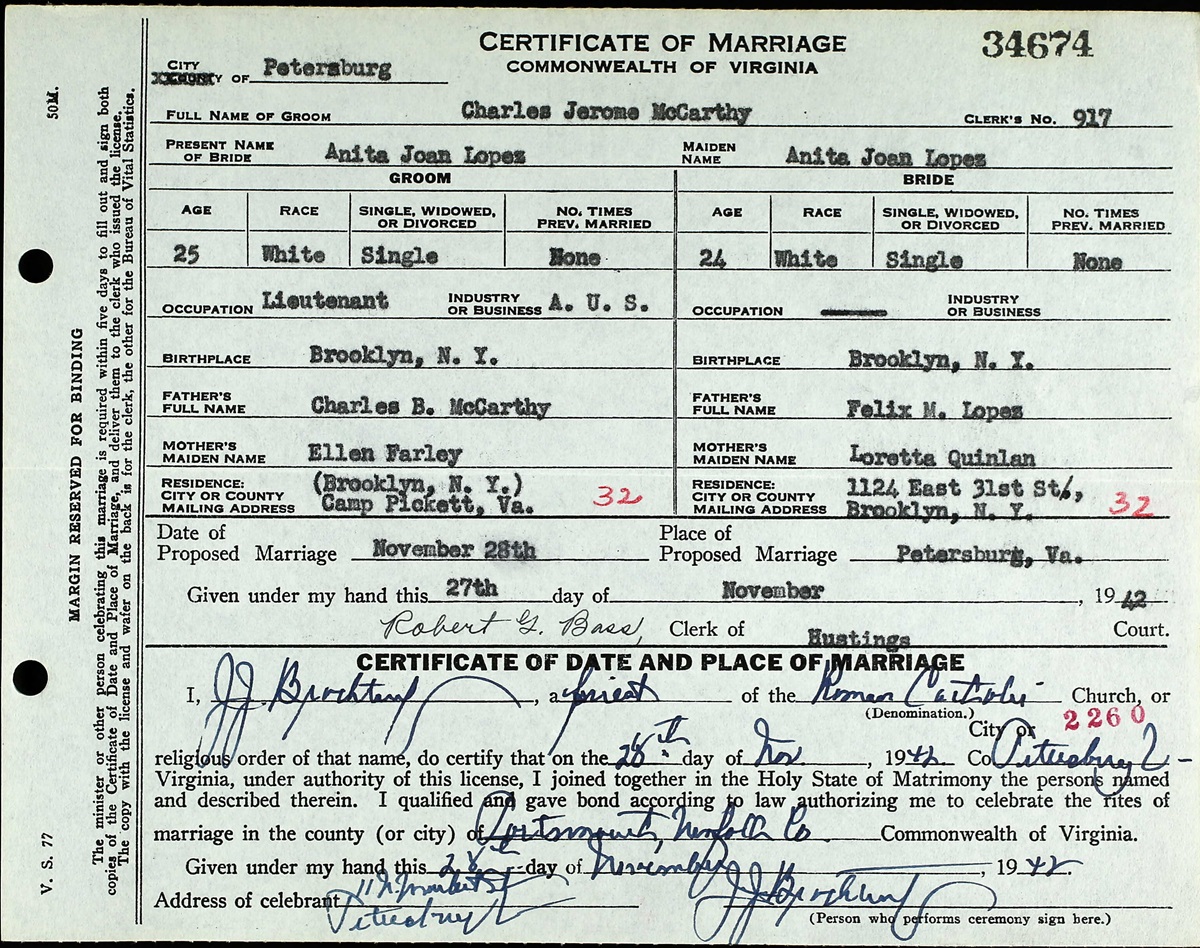 CERTIFICATE OF MARRIAGE
COMMONWEALTH OF VIRGINIA
34674
CITY
XXCOUNTY OF Petersburg
FULL NAME OF GROOM Charles Jerome McCarthy CLERK'S No. 917
PRESENT NAME OF BRIDE Anita Joan Lopez MAIDEN NAME Anita Joan Lopez
GROOM BRIDE
AGE RACE SINGLE, WIDOWED, OR DIVORCED NO. TIMES PREV. MARRIED AGE RACE SINGLE, WIDOWED, OR DIVORCED NO. TIMES PREV. MARRIED
25 White Single None 24 White Single None
OCCUPATION Lieutenant INDUSTRY OR BUSINESS A. U. S. OCCUPATION INDUSTRY OR BUSINESS
BIRTHPLACE Brooklyn, N. Y. BIRTHPLACE Brooklyn, N. Y.
FATHER'S FULL NAME Charles B. McCarthy FATHER'S FULL NAME Felix M. Lopez
MOTHER'S MAIDEN NAME Ellen Farley MOTHER'S MAIDEN NAME Loretta Quinlan
RESIDENCE: (Brooklyn, N. Y.) RESIDENCE: 1124 East 31st St.,
CITY OR COUNTY 32 CITY OR COUNTY 32
MAILING ADDRESS Camp Pickett, Va. MAILING ADDRESS Brooklyn, N. Y.
Date of Proposed Marriage November 28th Place of Proposed Marriage Petersburg, Va.
Given under my hand this 27th day of November, 1942
Robert G. Bass, Clerk of Hustings Court.
CERTIFICATE OF DATE AND PLACE OF MARRIAGE
I, J.J. a priest of the Roman Catholic Church, or
(Denomination.) 2260
City or
religious order of that name, do certify that on the 28th day of Nov, 1942 Co Petersburg
Virginia, under authority of this license, I joined together in the Holy State of Matrimony the persons named
and described therein. I qualified and gave bond according to law authorizing me to celebrate the rites of
marriage in the county (or city) of Portsmouth, Norfolk Co Commonwealth of Virginia.
Given under my hand this 28th day of November, 1942.
Address of celebrant J.J.
Petersburg
(Person who performs ceremony sign here.)
V. S. 77 50M.
MARGIN RESERVED FOR BINDING
The minister or other person celebrating this marriage is required within five days to fill out and sign both
copies of the Certificate of Date and Place of Marriage, and deliver them to the clerk who issued the license.
The copy with the license and wafer on the back is for the clerk, the other for the Bureau of Vital Statistics.